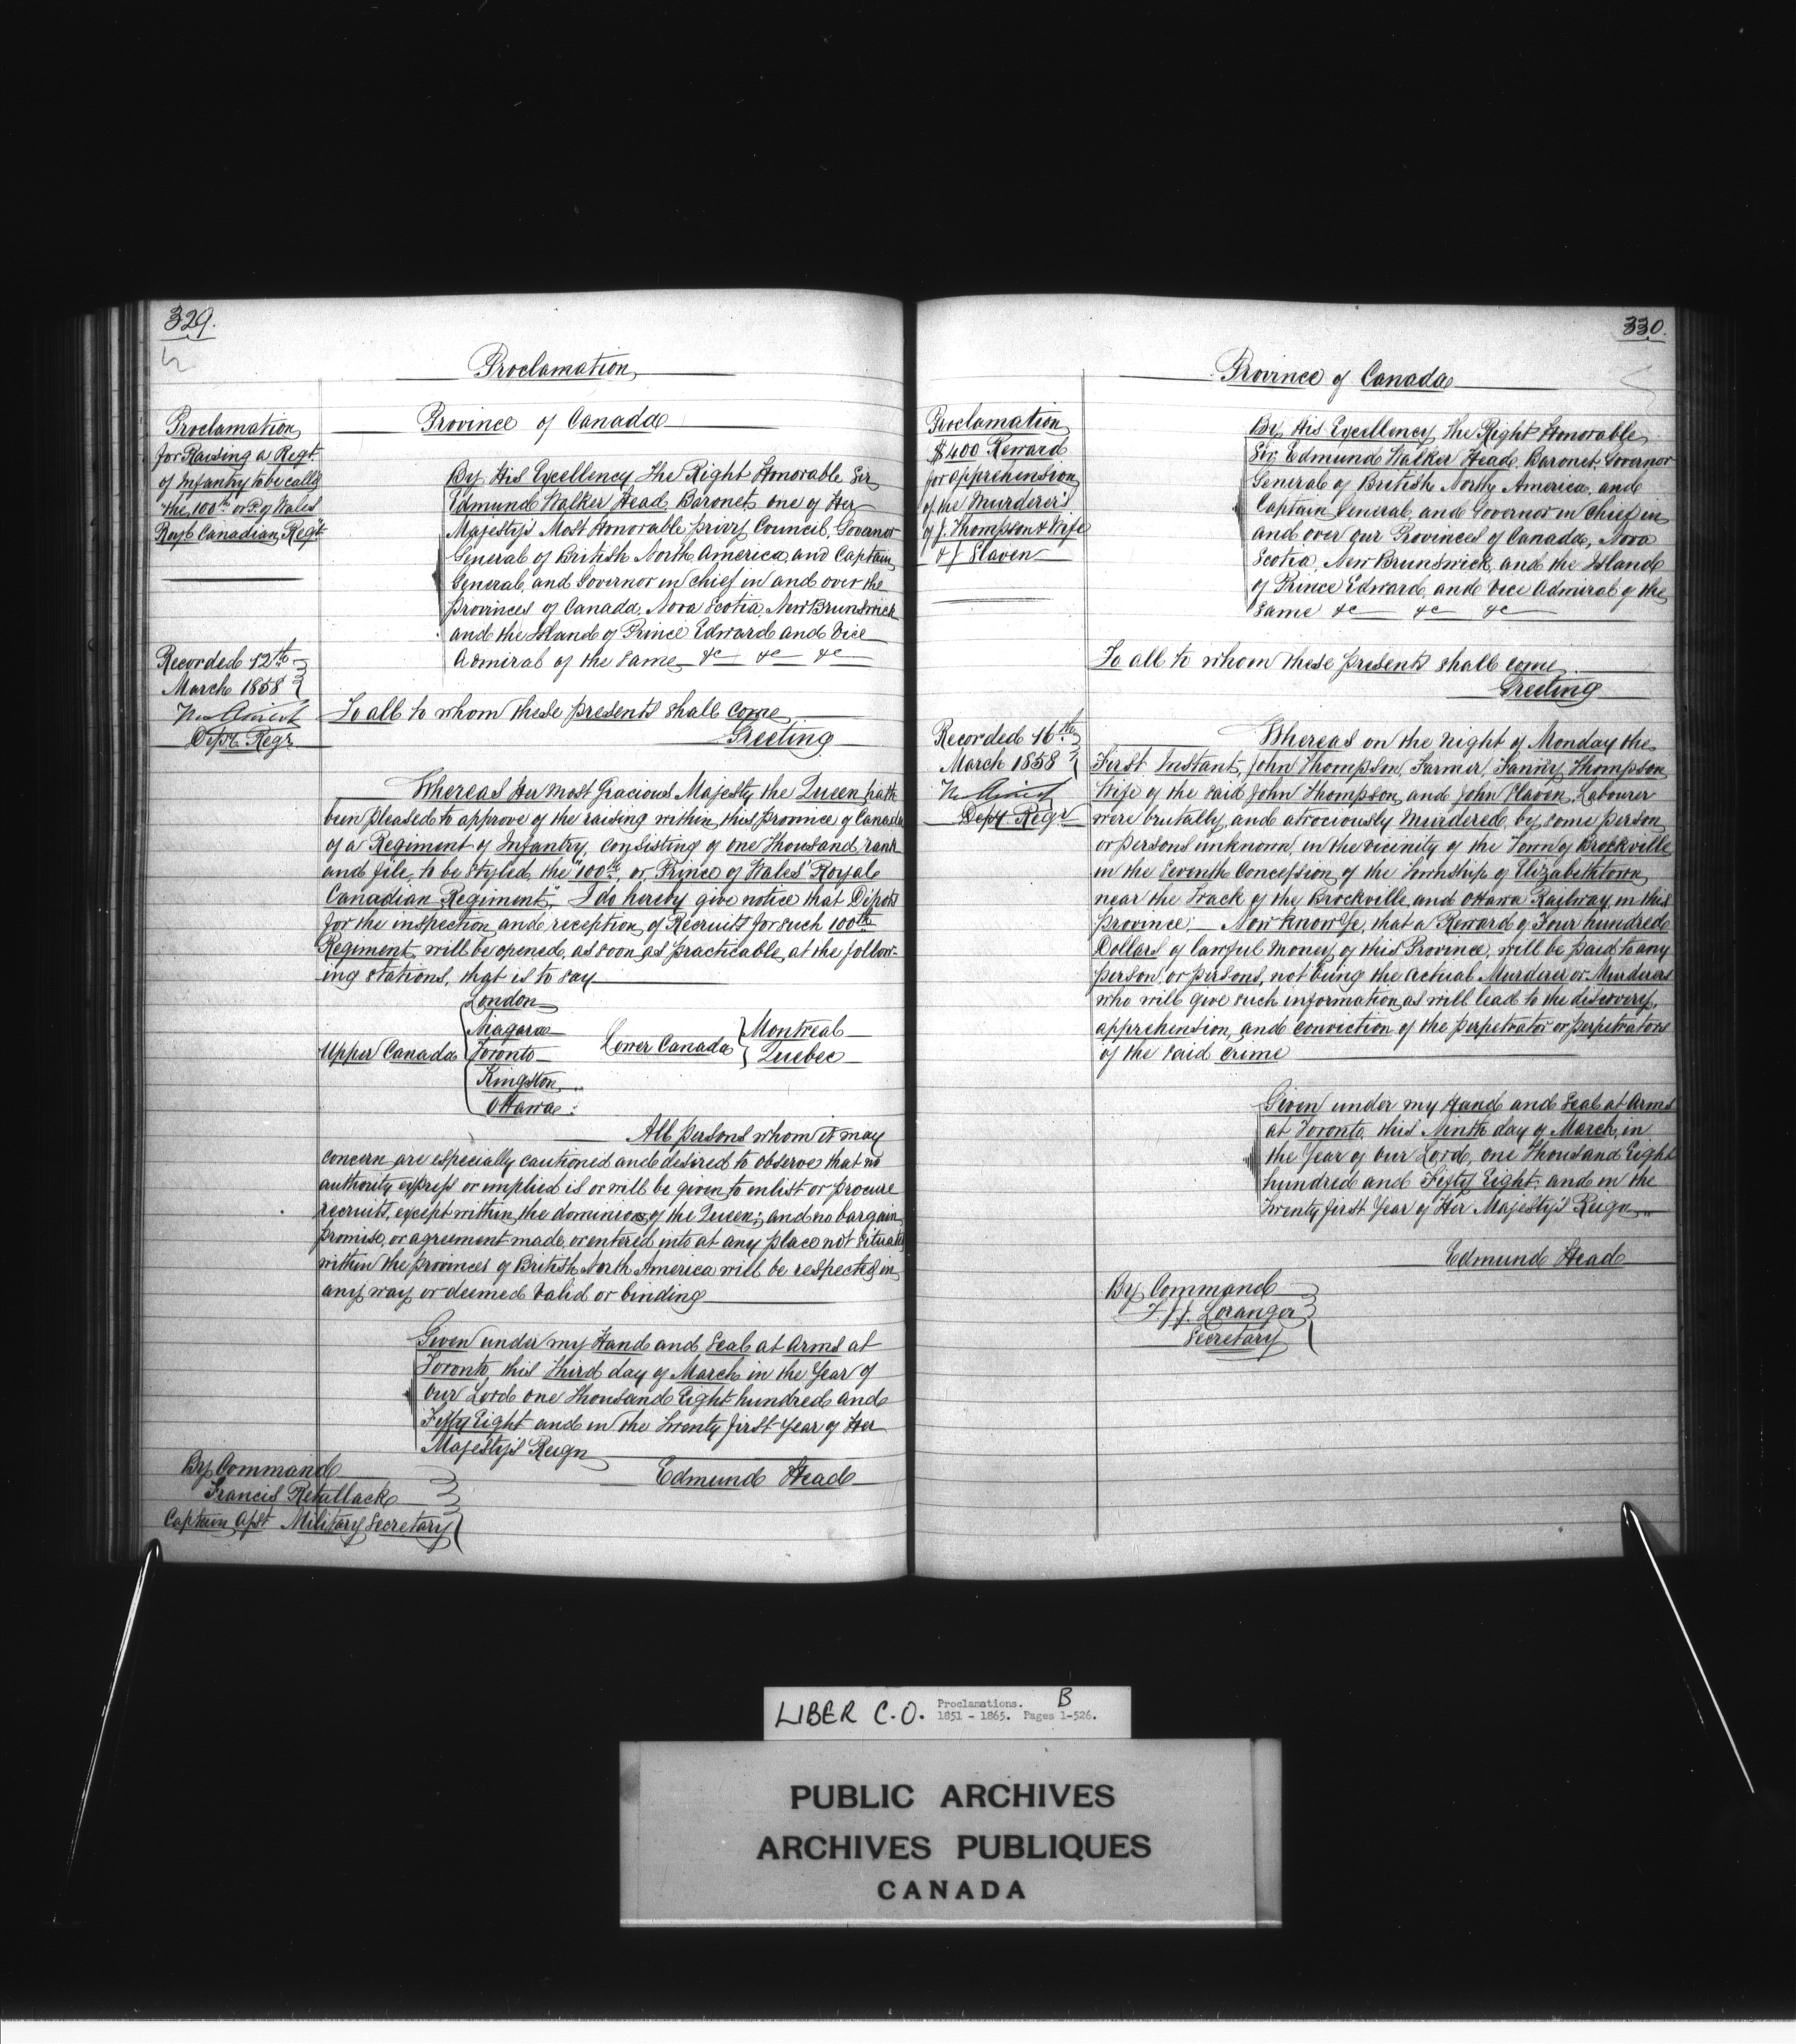 329.
Proclamation
Province of Canada
Proclamation
for Raising a Regt.
of Infantry to be called
the 100th or P. of Wales
Royl Canadian Regt
By His Excellency The Right Honorable Sir
Edmund Walker Head, Baronet, one of Her
Majesty's Most Honorable privy Council, Governor
General of British North America, and Captain
General, and Governor in chief in and over the
provinces of Canada, Nova Scotia, New Brunswick
and the Island of Prince Edward and Vice
Admiral of the same &c &c &c
Recorded 12th
March 1858
Depy Regr
To all to whom these presents shall come
Greeting
Whereas Her Most Gracious Majesty the Queen hath
been pleased to approve of the raising within this province of Canada
of a Regiment of Infantry, consisting of one thousand rank
and file, to be styled, the "100th or Prince of Wales' Royal
Canadian Regiment", I do hereby give notice that Depots
for the inspection and reception of Recruits for such 100th
Regiment, will be opened, as soon as practicable, at the follow-
ing stations, that is to say
Upper Canada
London
Niagara
Toronto
Kingston
Ottawa
Lower Canada
Montreal
Quebec
All persons whom it may
concern are especially cautioned and desired to observe that no
authority express or implied is or will be given to enlist or procure
recruits, except within the dominions of the Queen; and no bargain
promise, or agreement made, or entered into at any place not situate
within the provinces of British North America will be respected in
any way or deemed Valid or binding
Given under my Hand and Seal at Arms at
Toronto, this third day of March in the Year of
Our Lord one thousand Eight hundred and
Fifty Eight and in the twenty first year of Her
Majesty's Reign
Edmund Head
By Command
Francis Retallack
Captain Asst Military Secretary
330.
Province of Canada
Proclamation
$400 Reward
for apprehension
of the Murderer's
of J. Thompson & Wife
& J Slaven
By His Excellency The Right Honorable
Sir Edmund Walker Head, Baronet, Governor
General of British North America, and
Captain General, and Governor in Chief in
and over our Provinces of Canada, Nova
Scotia, New Brunswick, and the Island
of Prince Edward, and Vice Admiral of the
Same &c &c &c
To all to whom these presents shall come
Greeting
Recorded 16th
March 1858
Depy Regr
Whereas on the night of Monday the
First Instant, John Thompson, Farmer, Fanny Thompson
Wife of the said John Thompson, and John Slaven, Labourer
were brutally, and atrociously murdered, by some person
or persons unknown, in the vicinity of the Town of Brockville
in the Seventh Concession of the Township of Elizabethtown
near the Track of the Brockville, and Ottawa Railway, in this
province. Now know Ye, that a Reward of Four hundred
Dollars of lawful money of this Province, will be paid to any
person, or persons, not being the actual Murderer or Murderers
who will give such information, as will lead to the discovery,
apprehension, and conviction of the perpetrator or perpetrators
of the said crime
Given under my Hand and Seal at Arms
at Toronto, this Ninth day of March, in
the Year of Our Lord, one thousand Eight
hundred and Fifty Eight, and in the
Twenty first Year of Her Majesty's Reign
Edmund Head
By Command
T. J. J. Loranger
Secretary
LIBER C.O. Proclamations. B
1851 - 1865. Pages 1-526.
PUBLIC ARCHIVES
ARCHIVES PUBLIQUES
CANADA